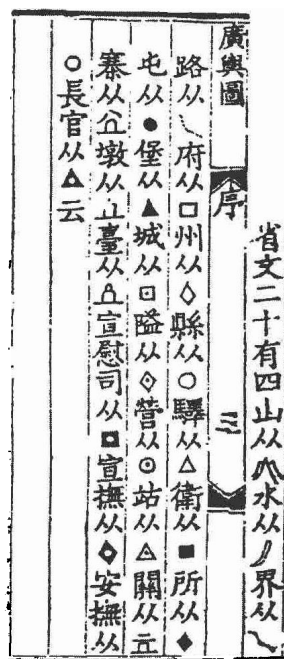 省文二十有四山从水从丿界从㇏
廣輿圖 序 三
路从㇏府从□州从◇縣从○驛从△衛从■所从◆
屯从●堡从▲城从⊡隘从⟐營从⊙站从◬關从
寨从墩从臺从宣慰司从宣撫从安撫从
○長官从△云